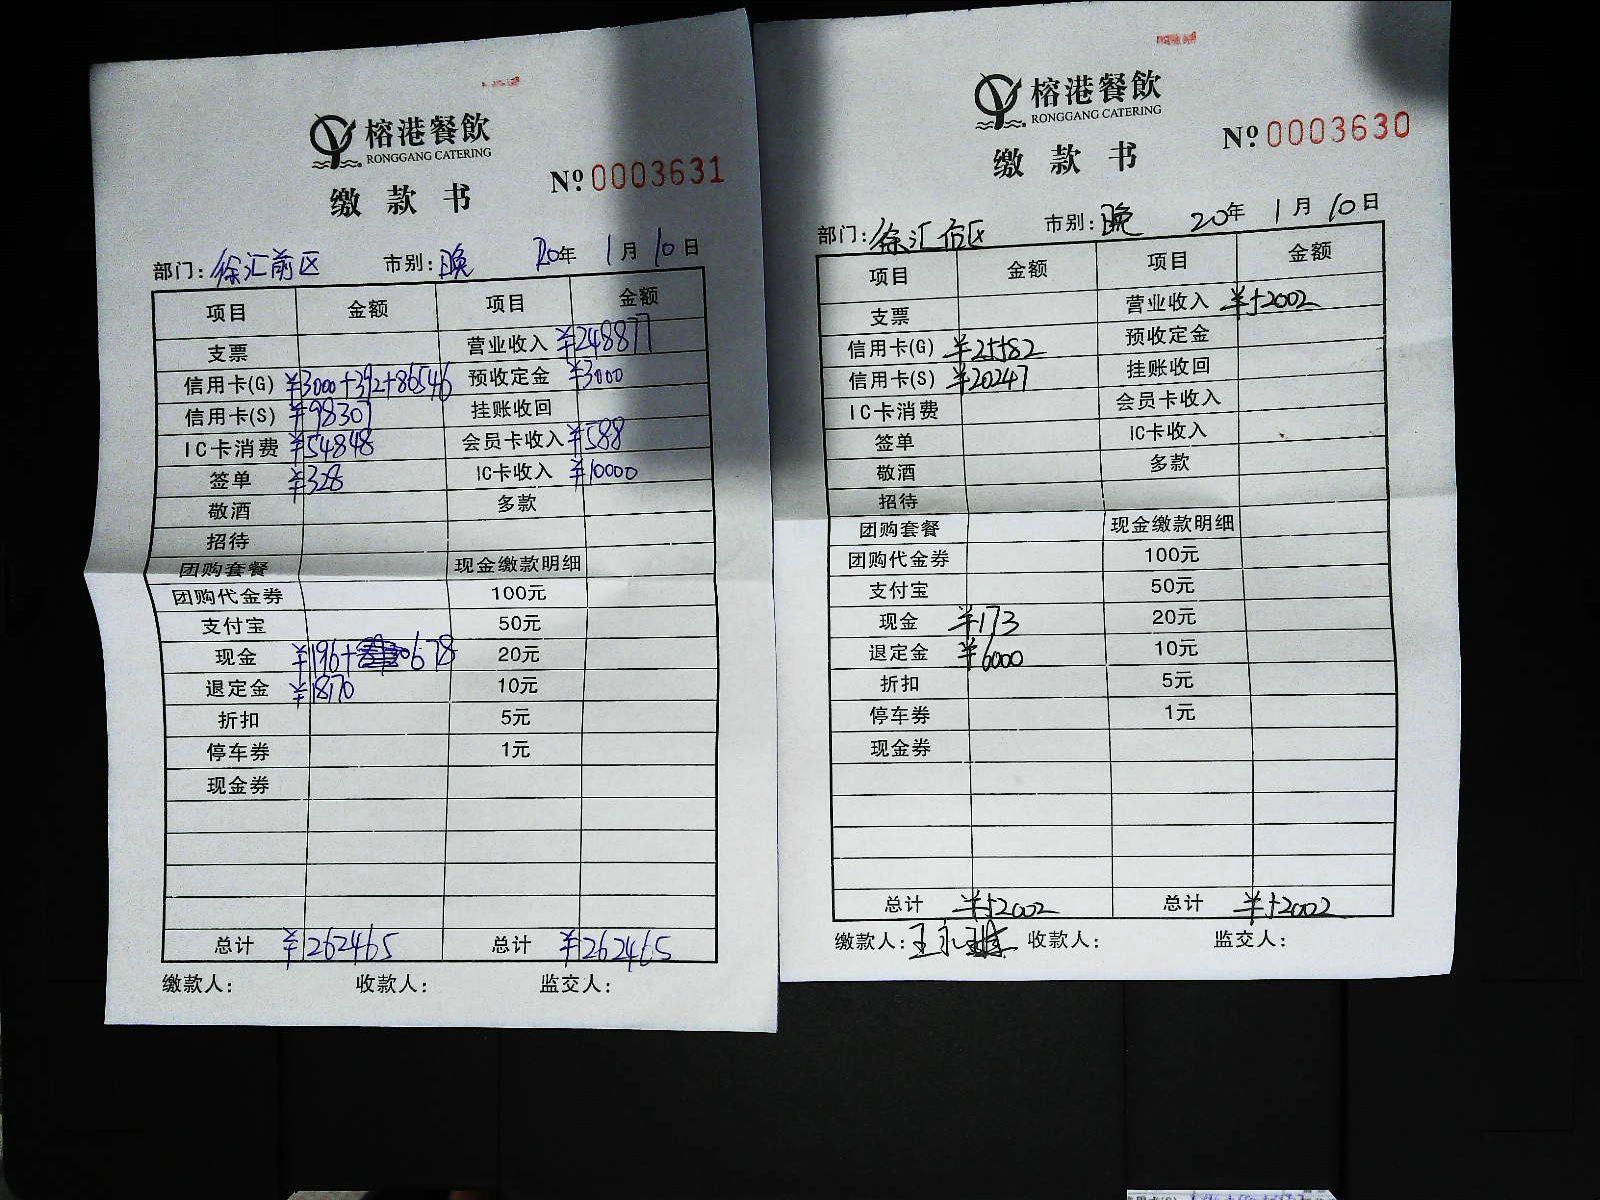 榕港餐飲
RONGGANG CATERING
缴款书
№ 0003631
部门: 徐汇前区 市别: 晚 20年 1月 10日
项目 金额 项目 金额
支票 营业收入 ¥248877
信用卡(G) ¥3000+392+86546 预收定金 ¥3000
信用卡(S) ¥98307 挂账收回
IC卡消费 ¥54848 会员卡收入 ¥588
签单 ¥328 IC卡收入 ¥10000
敬酒 多款
招待
团购套餐 现金缴款明细
团购代金券 100元
支付宝 50元
现金 ¥196+678 20元
退定金 ¥18170 10元
折扣 5元
停车券 1元
现金券
总计 ¥262465 总计 ¥262465
缴款人: 收款人: 监交人:
榕港餐飲
RONGGANG CATERING
缴款书
№ 0003630
部门: 徐汇市区 市别: 晚 20年 1月 10日
项目 金额 项目 金额
支票 营业收入 ¥52002
信用卡(G) ¥25582 预收定金
信用卡(S) ¥20247 挂账收回
IC卡消费 会员卡收入
签单 IC卡收入
敬酒 多款
招待
团购套餐 现金缴款明细
团购代金券 100元
支付宝 50元
现金 ¥173 20元
退定金 ¥6000 10元
折扣 5元
停车券 1元
现金券
总计 ¥52002 总计 ¥52002
缴款人: 收款人: 监交人: